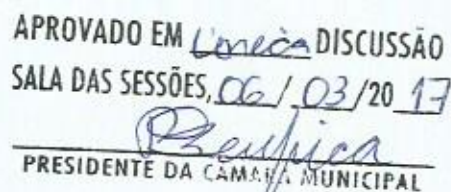 APROVADO EM única DISCUSSÃO
SALA DAS SESSÕES, 06 / 03 /20 17
PRESIDENTE DA CÂMARA MUNICIPAL